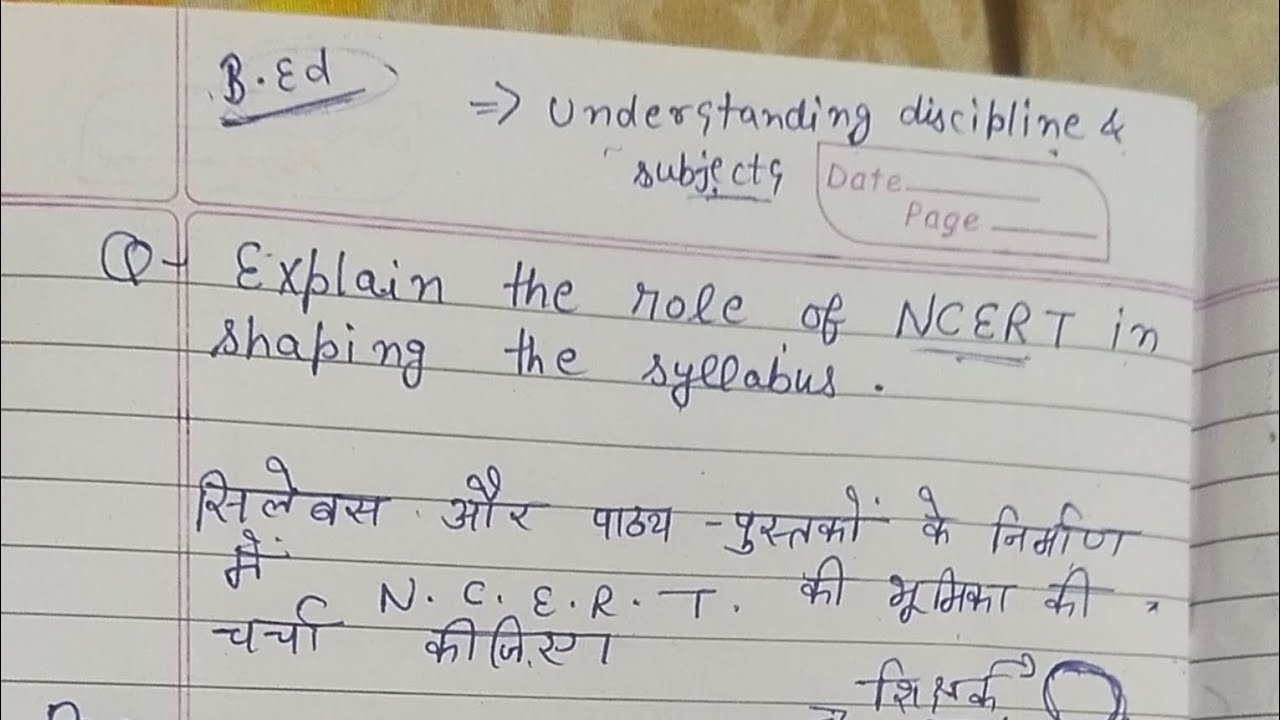 B.Ed
⇒ Understanding discipline &
subjects
Date
Page
Q- Explain the role of NCERT in
shaping the syllabus.
सिलेबस और पाठ्य-पुस्तकों के निर्माण
में N.C.E.R.T. की भूमिका की
चर्चा कीजिए।
शिक्षक